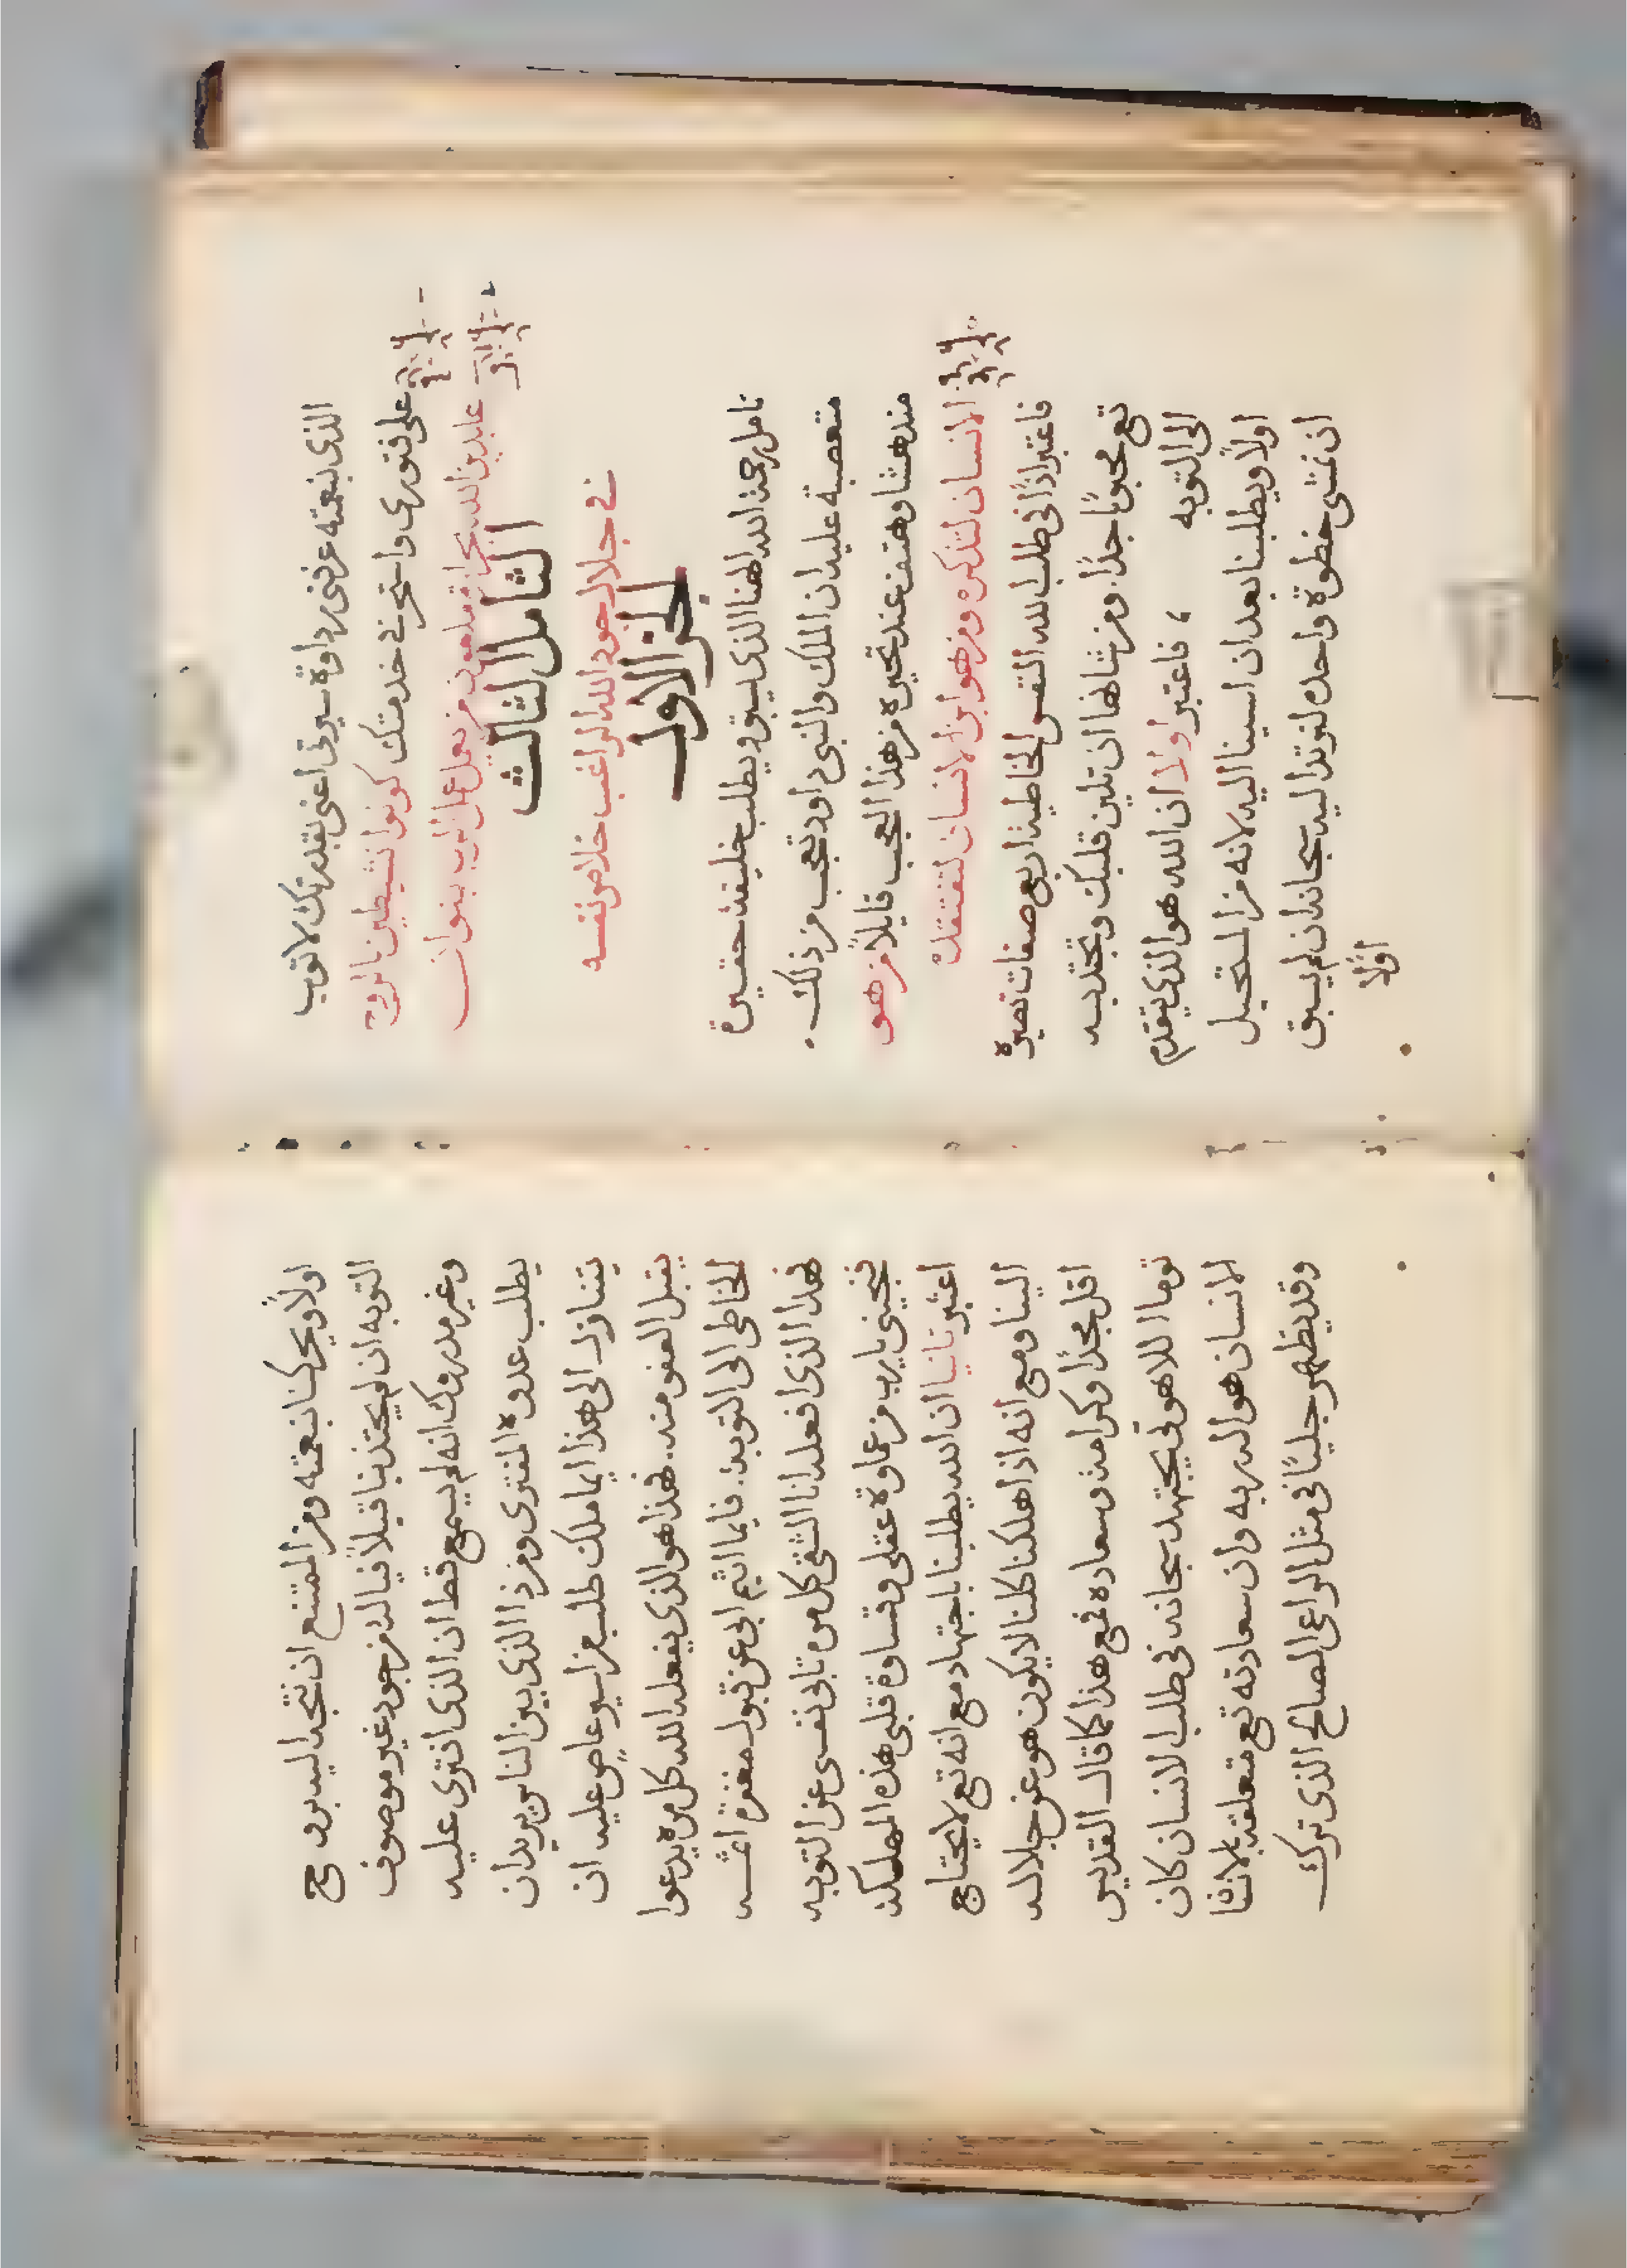 الذى بنعمته عرفنى رداوة سيرتى اعنى بقدرتك لاتوب
على فتورى واستحر فى خدمتك كونوا نشيطين بالروح
عابدين الله ملعون من يعمل عمل الرب بتوان
التامل الثالث
فى جلال جود الله الراغب خلاص نفسه
الجز الاول
تامل رحمة الله الهنا الذى يسبق ويطلب خليقة حقيرة
متعصبة عليه ان الملك والنبى داود تعجب من ذلك
مندهشا وهتف عند تحيره من هذا العجب قايلاً من هو
الانسان لتذكره ومن هو ابن الانسان لتفتقده
فاعتبر اذًا فى طلب الله النفس الخاطية اربع صفات تصيره
تع محبوبًا جدًا ومن شانها ان تلين قلبك وتجتذبه
الى التوبه ، فاعتبر اولا ان الله هو الذى يتقدم
اولاً ويطلبنا بعد ان اسينا اليه لانه من المستحيل
ان نمشى خطوة واحده لنرتد اليه سبحانه ان لم يسبق
اولا
اولاً ويحركنا بنعمته ومن الممتنع ان نتجه اليه بروح
التوبه ان لم يجتذبنا قبلاً فيا له من جود غير موصوف
وغير مدروك انه لم يسمع قط ان الذى افترى عليه
يطلب عدوه المفترى ومن ذا الذى بين الناس يريد ان
يتنازل الى هذا ايما ملك طلب من اسير عاصٍ عليه ان
يقبل العفو منه. فهذا هو الذى يفعله الله كل مرة يدعوا
الخاطى الى التوبة. فايما اثيم ابى عن قبول مغفرة اثمه
فهذا الذى افعله انا الشقى كل مرة تابى نفسى عن التوبه
فنجينى يا رب من عماوة عقلى وقساوة قلبى هذه المهلكة
اعتبر ثانيا ان الله يطلبنا باجتهاد مع انه تع لا يحتاج
الينا ومع انه اذا اهلكنا كلنا لا يكون هو عن جلاله
اقل مجدًا وكرامة وسعاده فمع هذا كما قال القديس
توما اللاهوتى يجتهد سبحانه فى طلب الانسان كان
الانسان هو اله ربه وان سعادته تع متعلقة بالانسا
وقد يظهر جليًا فى مثل الراعى الصالح الذى ترك